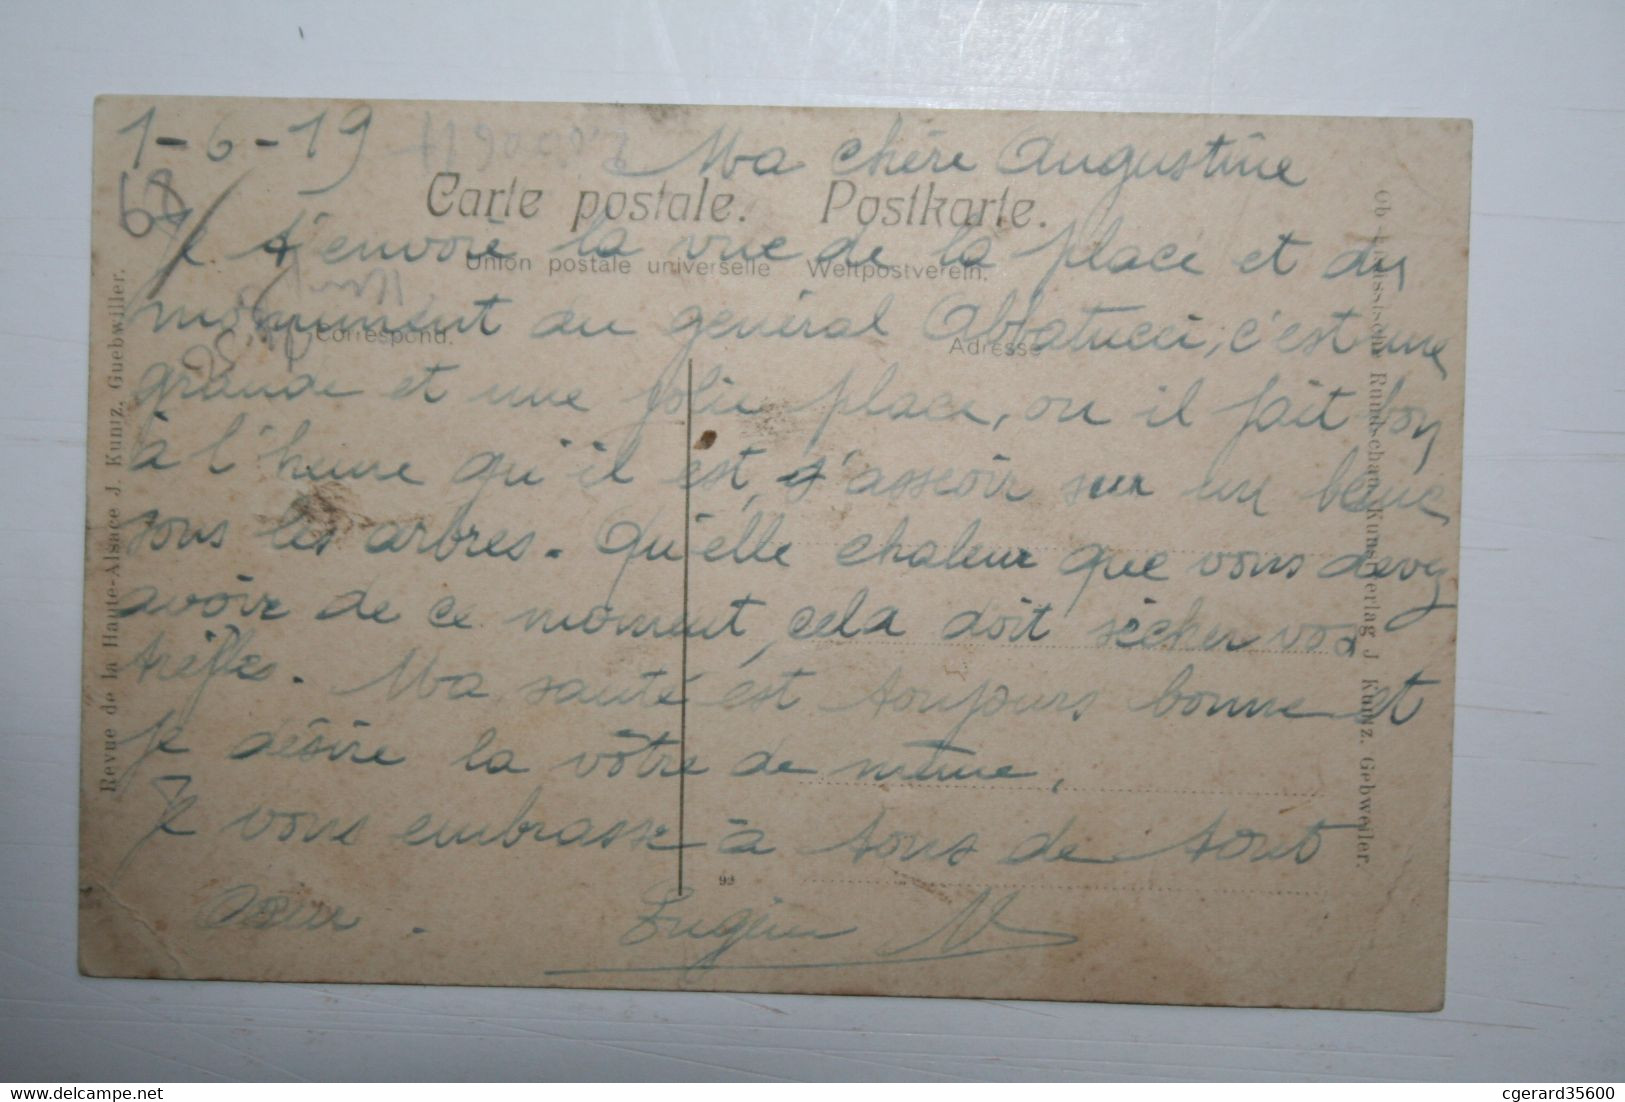 1-6-19 Ma chère Augustine
68
Carte postale. Postkarte.
Je t'envoie la vue de la place et du
Union postale universelle Weltpostverein.
monument du général Abbatucci, c'est une
Correspond. Adresse
grande et une jolie place, ou il fait bon
à l'heure qu'il est, s'asseoir sur un banc
sous les arbres. Qu'elle chaleur que vous devez
avoir de ce moment, cela doit sècher vos
trèfles. Ma santé est toujours bonne et
je désire la vôtre de même,
Je vous embrasse à tous de tout
cœur. Eugène
93
Revue de la Haute-Alsace J. Kuntz, Guebwiller.
Rundschau, Kunstverlag J. Kuntz. Gebweiler.
cgerard35600